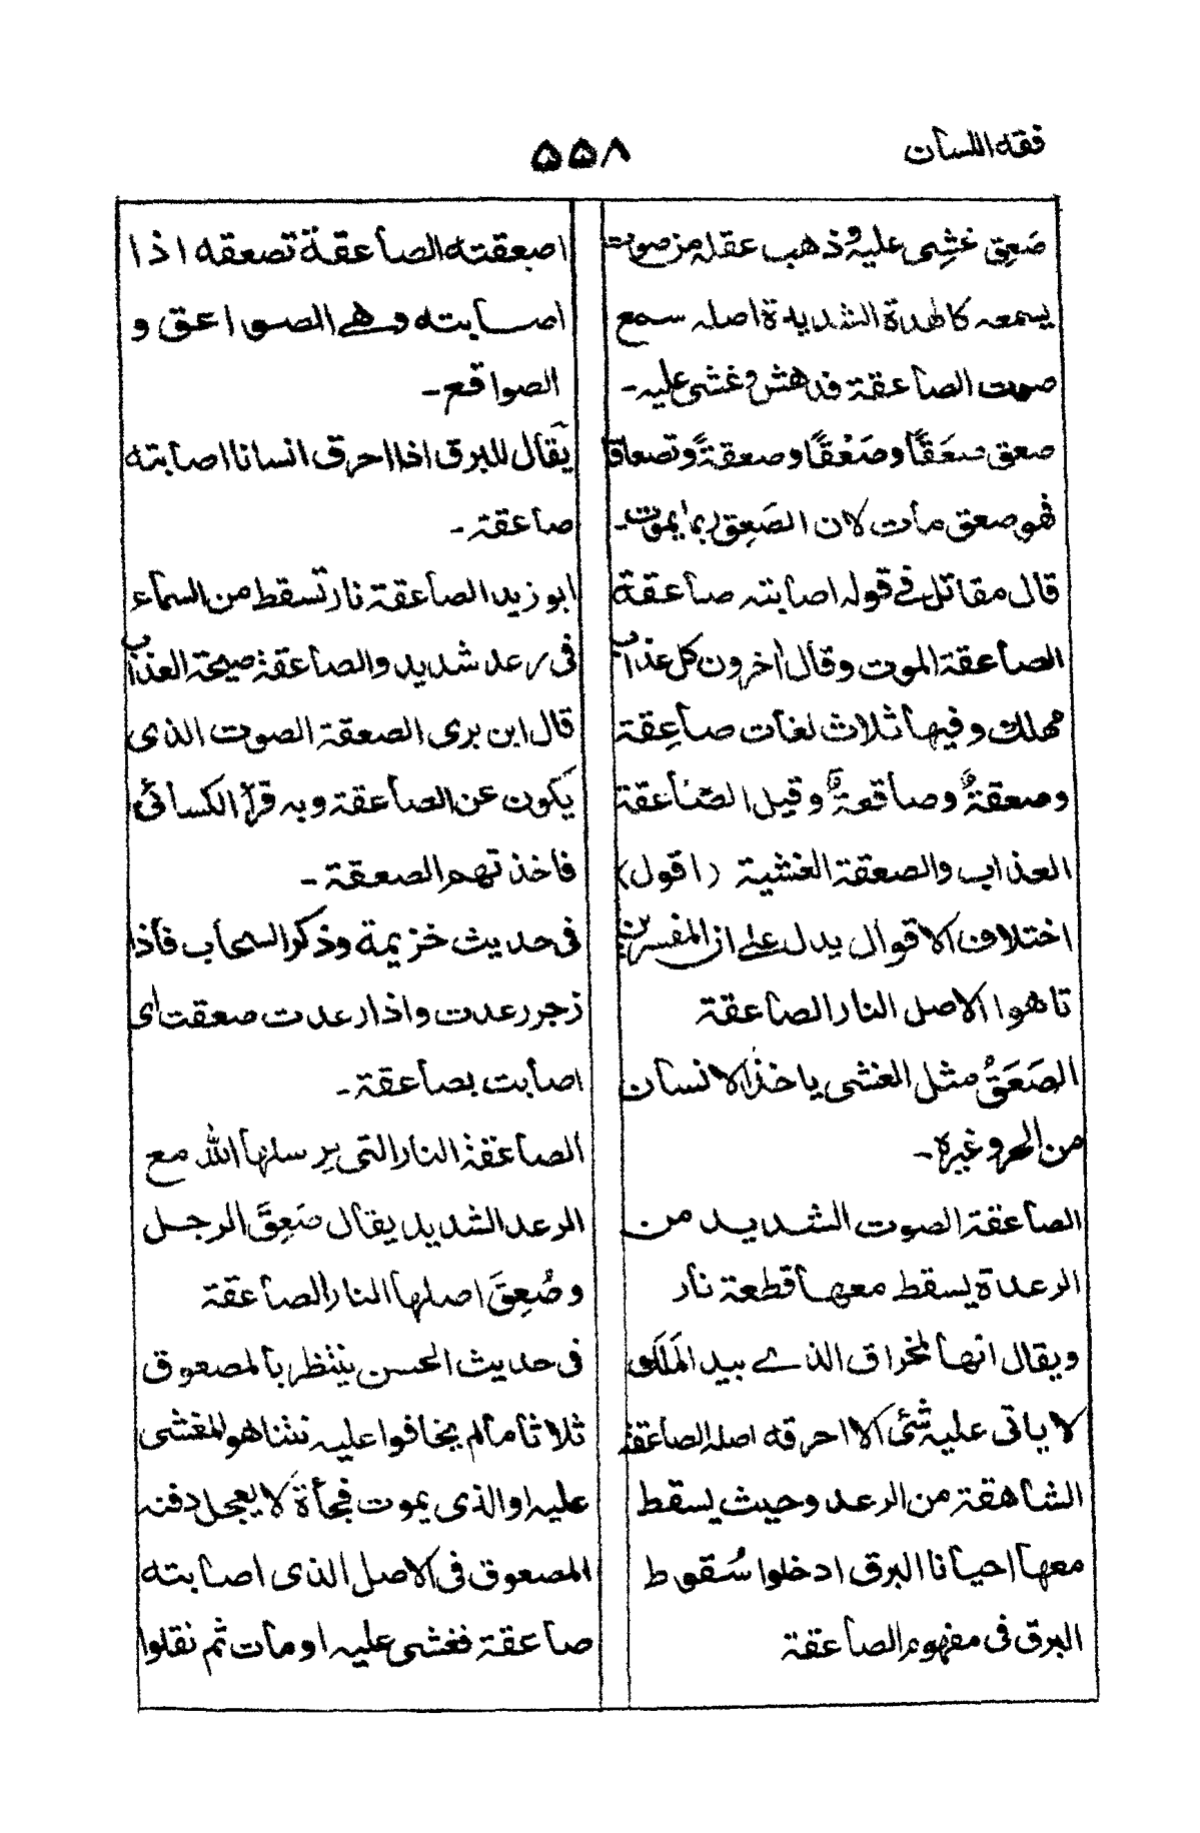 فقه اللسان
۵۵۸
صَعِقَ غشِی علیه وذهب عقله من صوت
یسمعه کالهدة الشدیدة اصله سمع
صوت الصاعقة فدهش وغشی علیه ـ
صعق صعَقًا وصَعْقًا وصعقةً وتصعاقا
فهو صعق مات لان الصَعِق ربما یموت ـ
قال مقاتل فی قوله اصابته صاعقة
الصاعقة الموت وقال اخرون کل عذاب
مهلك وفیها ثلاث لغات صاعِقة
وصعقةٌ وصاقعةٌ وقیل الصاعقة
العذاب والصعقة الغشیة (اقول)
اختلاف الاقوال یدل علی ان المفسرین
تاهوا الاصل النار الصاعقة
الصَعَقُ مثل الغشی یاخذ الانسان
من الحر وغیره ـ
الصاعقة الصوت الشدید من
الرعدة یسقط معها قطعة نار
ویقال انها المخراق الذی بید المَلَك
لا یاتی علیه شئی الا احرقه اصله الصاعقة
الشاهقة من الرعد وحیث یسقط
معها احیانا البرق ادخلوا سُقوط
البرق فی مفهوم الصاعقة
اصعقته الصاعقة تصعقه اذا
اصابته وهی الصواعق و
الصواقع ـ
یقال للبرق اذا احرق انسانا اصابته
صاعقة ـ
ابو زید الصاعقة نار تسقط من السماء
فی رعد شدید والصاعقة صیحة العذاب
قال ابن بری الصعقة الصوت الذی
یکون عن الصاعقة وبه قرأ الکسائی
فاخذتهم الصعقة ـ
فی حدیث خزیمة وذکر السحاب فاذا
زجر رعدت واذا رعدت صعقت ای
اصابت بصاعقة ـ
الصاعقة النار التی یرسلها الله مع
الرعد الشدید یقال صَعِقَ الرجل
وصُعِقَ اصلها النار الصاعقة
فی حدیث الحسن ینتظر بالمصعوق
ثلاثا مالم یخافوا علیه نتنا هو المغشی
علیه او الذی یموت فجأة لا یعجل دفنه
المصعوق فی الاصل الذی اصابته
صاعقة فغشی علیه او مات ثم نقلوا